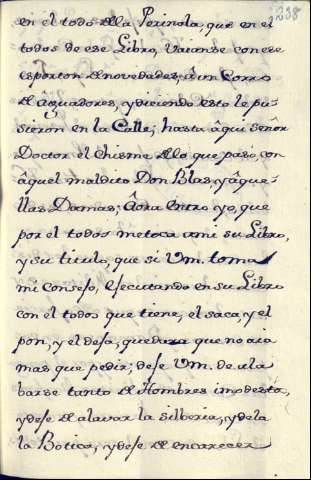 238
en el todo della Perinola, que en el
todos de ese Libro, Vaianse con ese
esporton de novedades, à un Corro
de Aguadores, y diciendo esto le pu-
sieron en la Calle; hasta àqui señor
Doctor el chisme dello que pasò, con
àquel maldito Don Blas, y àque-
llas Damas; Aora entro yo, que
por el todos me toca a mi su Libro,
y su titulo, que si Vm. toma
mi consejo, Esecutando en su Libro
con el todos que tiene, el saca, y el
pon, y el deja, quedara que no aia
mas que pedir; dese Vm. de ala
barse tanto de Hombres imodesto,
y dese de alavar la silberia, y dela
la Botica, y dese de encarecer